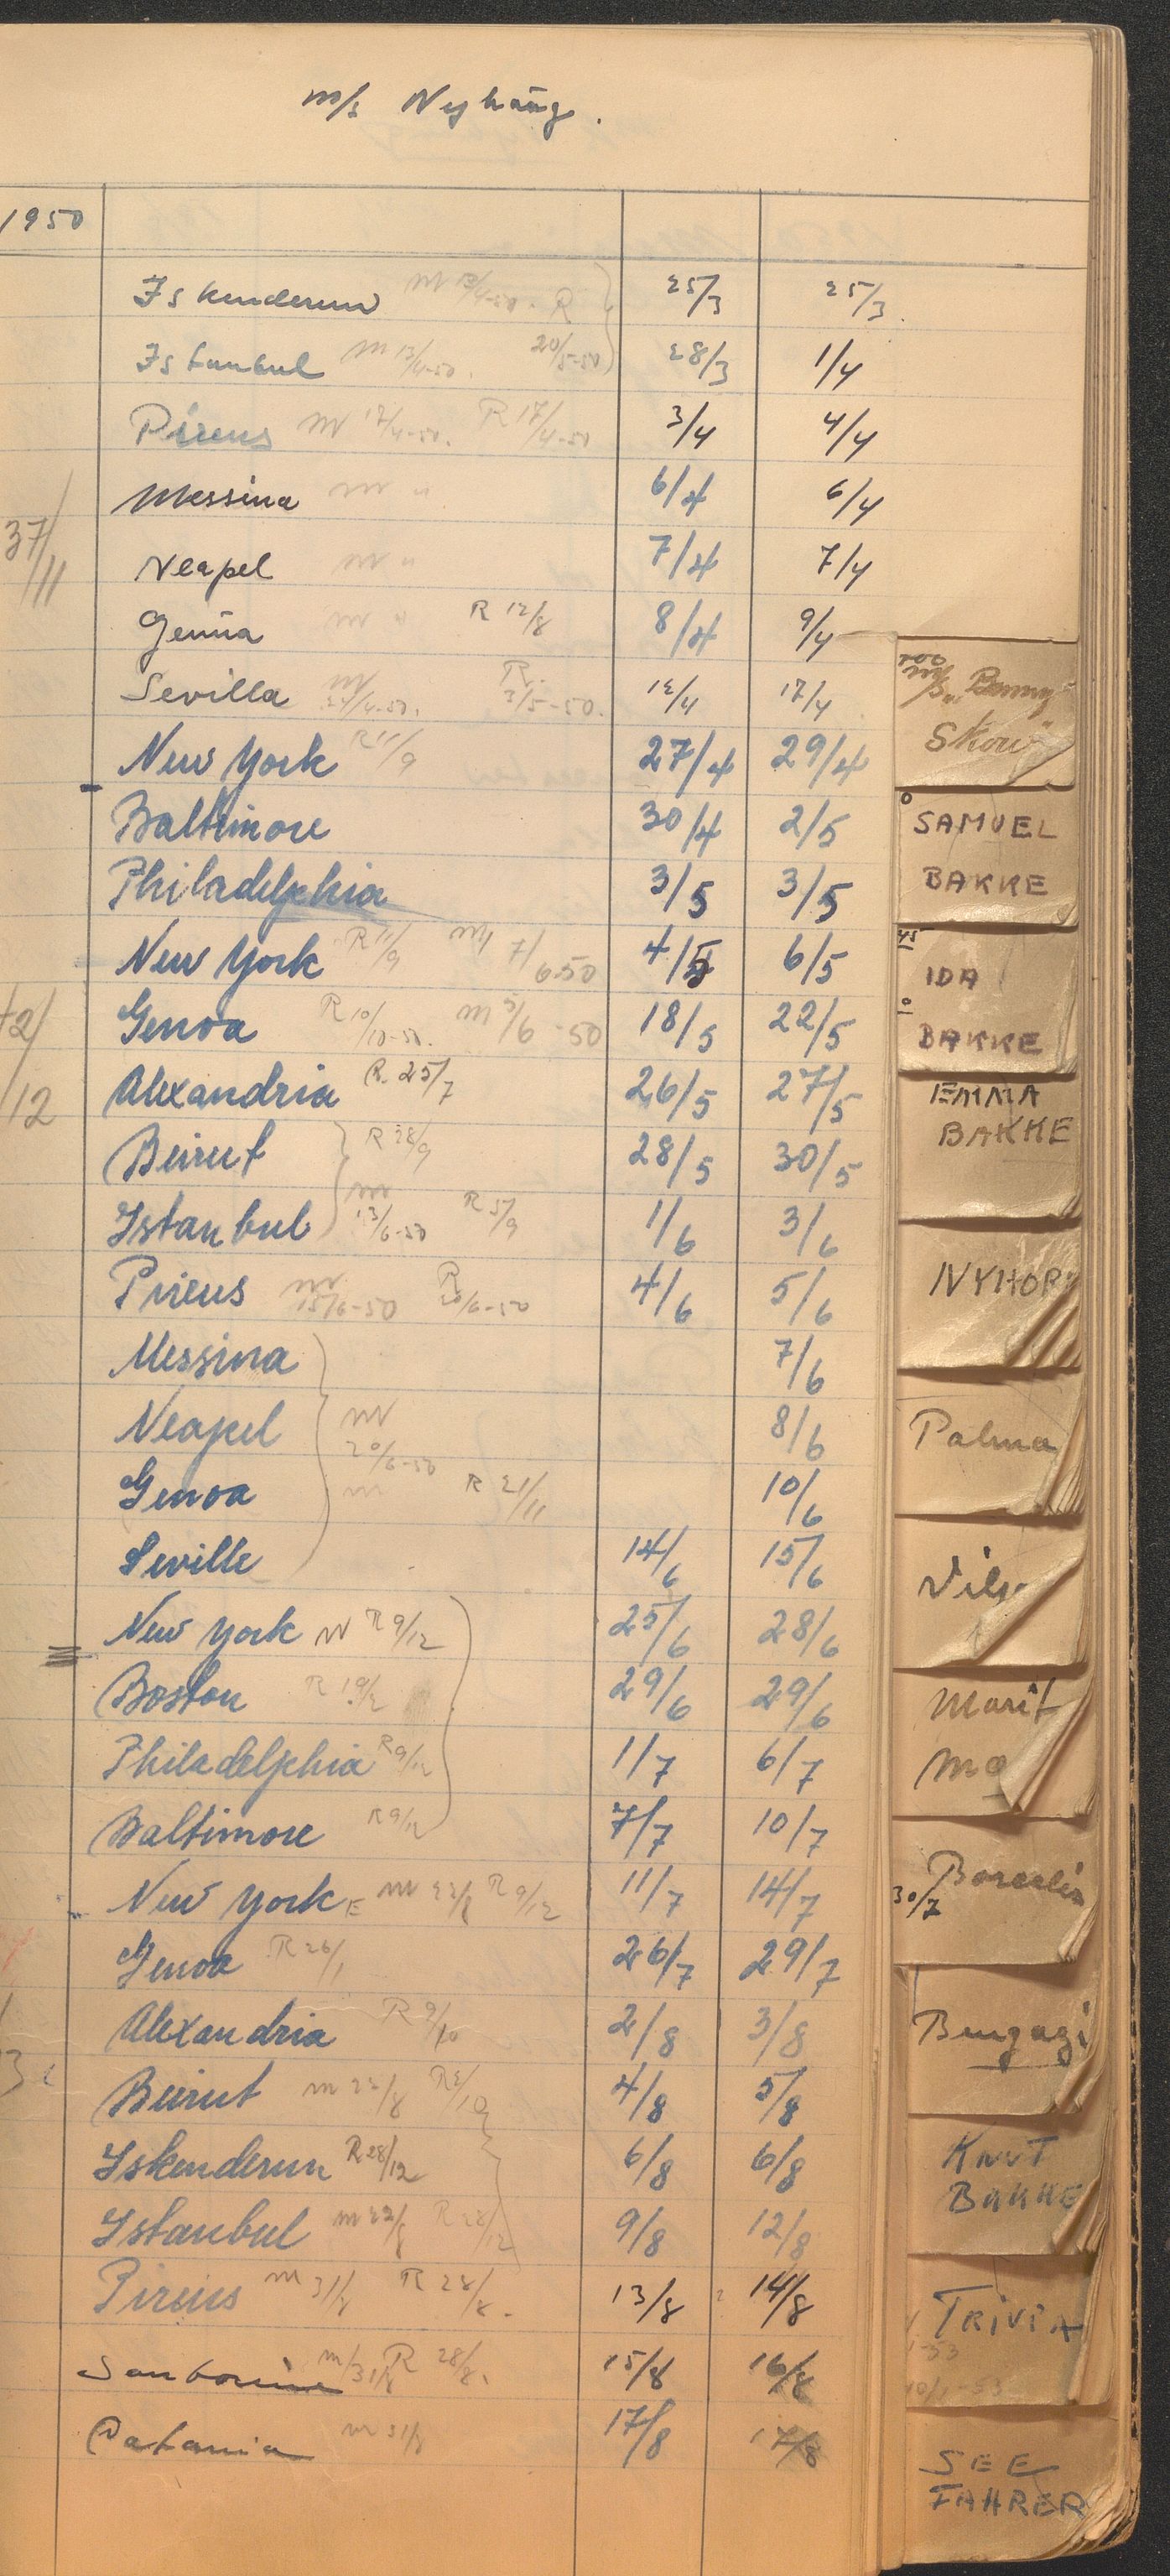 m/s Nyhaug.
1950
Iskenderun m 13/4-50. R 25/3 25/3.
Istanbul m 13/4-50. 20/5-50 28/3 1/4
Pireus m 17/4-50. R 17/4-50 3/4 4/4
Messina m " 6/4 6/4
37/11
Neapel m " 7/4 7/4
Genua m " R 12/8 8/4 9/4
Sevilla m /4-50. R. 3/5-50. 12/4 17/4
New York R 11/9 27/4 29/4
Baltimore 30/4 2/5
Philadelphia 3/5 3/5
New York R 11/9 m 7/6 50 4/5 6/5
Genoa R 10/10-50. m 5/6-50 18/5 22/5
Alexandria R. 25/7 26/5 27/5
12
Beirut R 28/9 28/5 30/5
Istanbul m 13/6-50 R 5/9 1/6 3/6
Pireus m 15/6-50 R 20/6-50 4/6 5/6
Messina 7/6
Neapel m 20/6-50 8/6
Genoa m R 21/11 10/6
Seville 14/6 15/6
New York m R 9/12 25/6 28/6
Boston R 19/2 29/6 29/6
Philadelphia R 9/12 1/7 6/7
Baltimore R 9/12 7/7 10/7
New York E m 22/8 R 9/12 11/7 14/7
Genoa R 26/1 26/7 29/7
Alexandria R 9/10 2/8 3/8
Beirut m 22/8 R 2/10 4/8 5/8
Iskenderun R 28/12 6/8 6/8
Istanbul m 22/8 R 28/12 9/8 12/8
Pireus m 31/8 R 28/8. 13/8 14/8
m/31/8 R 28/8. 15/8 16/8
Catania m 31/8 17/8 17/8
m/s "Benny
Skou"
SAMUEL
BAKKE
45
IDA
BAKKE
EMMA
BAKKE
NYHOR
Palma
Vil
Marit
Ma
30/7
Bengazi
KNUT
BAKKE
TRIVIA
SEE
FAHRER